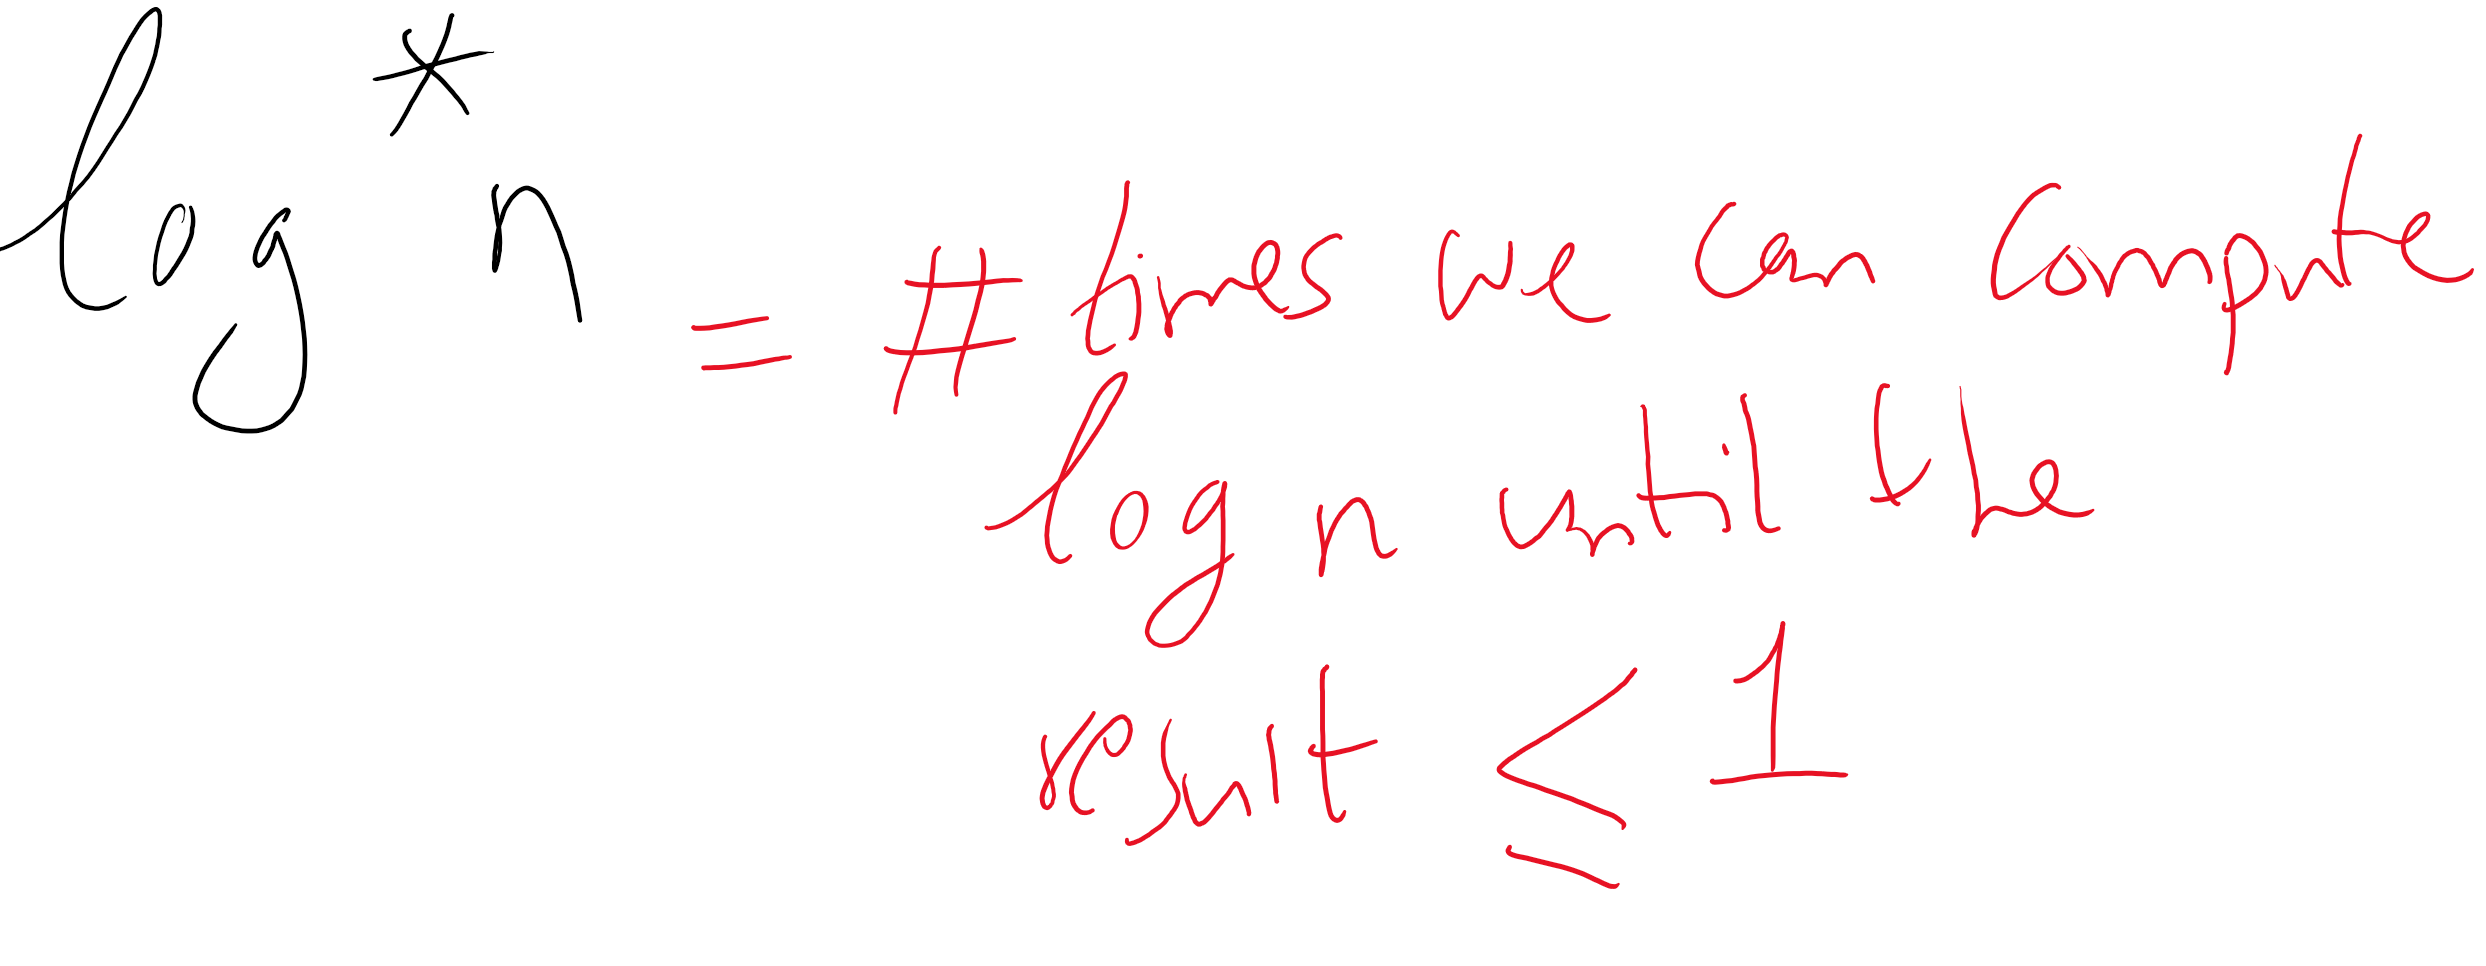 log* n = # times we can compute
log n until the
result ≤ 1